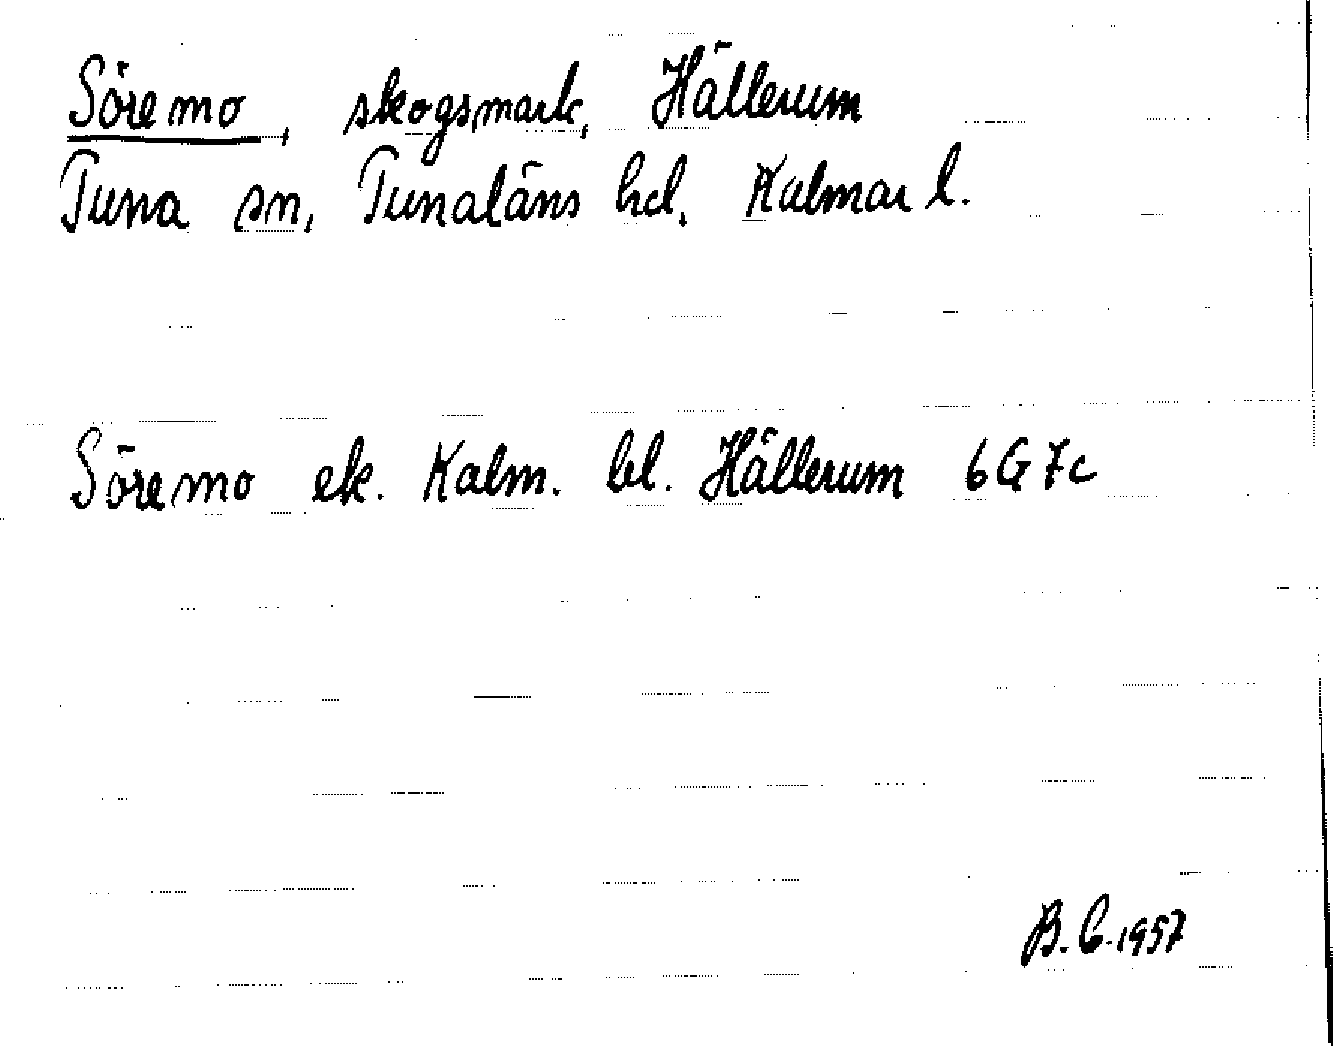 Söremo, skogsmark, Hällerum
Tuna sn, Tunaläns hd, Kalmar l.
Söremo ek. Kalm. bl. Hällerum 6G7c
B.C. 1957